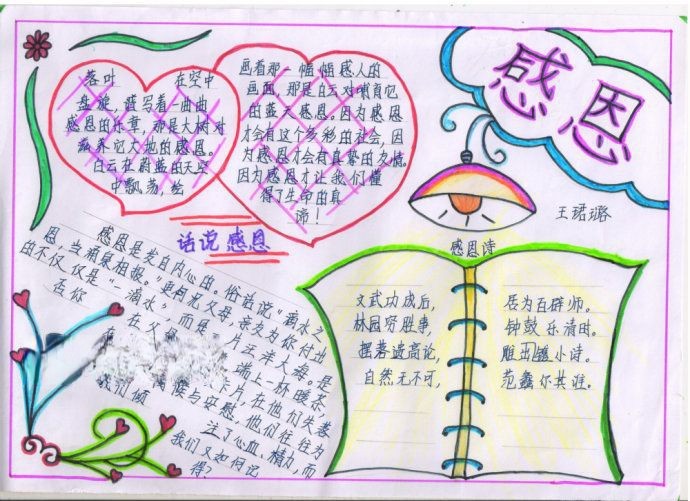 感恩
王珺璐
落叶 在空中
盘旋，谱写着一曲曲
感恩的乐章，那是大树对
滋养它大地的感恩。
白云在蔚蓝的天空
中飘荡，绘
画着那一幅幅感人的
画面，那是白云对哺育它
的蓝天感恩。因为感恩
才会有这个多彩的社会，因
为感恩才会有真挚的友情。
因为感恩才让我们懂
得了生命的真
谛！
话说感恩
感恩是发自内心的。俗话说"滴水之
恩，当涌泉相报。"更何况父母，亲友为你付出
的不仅仅是"一滴水"，而是一片汪洋大海。是
否你 在父母 端上一杯暖茶
卡片，在他们失落
与安慰，他们往往为
我们倾 注了心血、精力，而
我们又如何记
得？
感恩诗
文武功成后，居为百辟师。
林园穷胜事，钟鼓乐清时。
摆落遗高论，雕出小诗。
自然无不可，范蠡尔其谁。